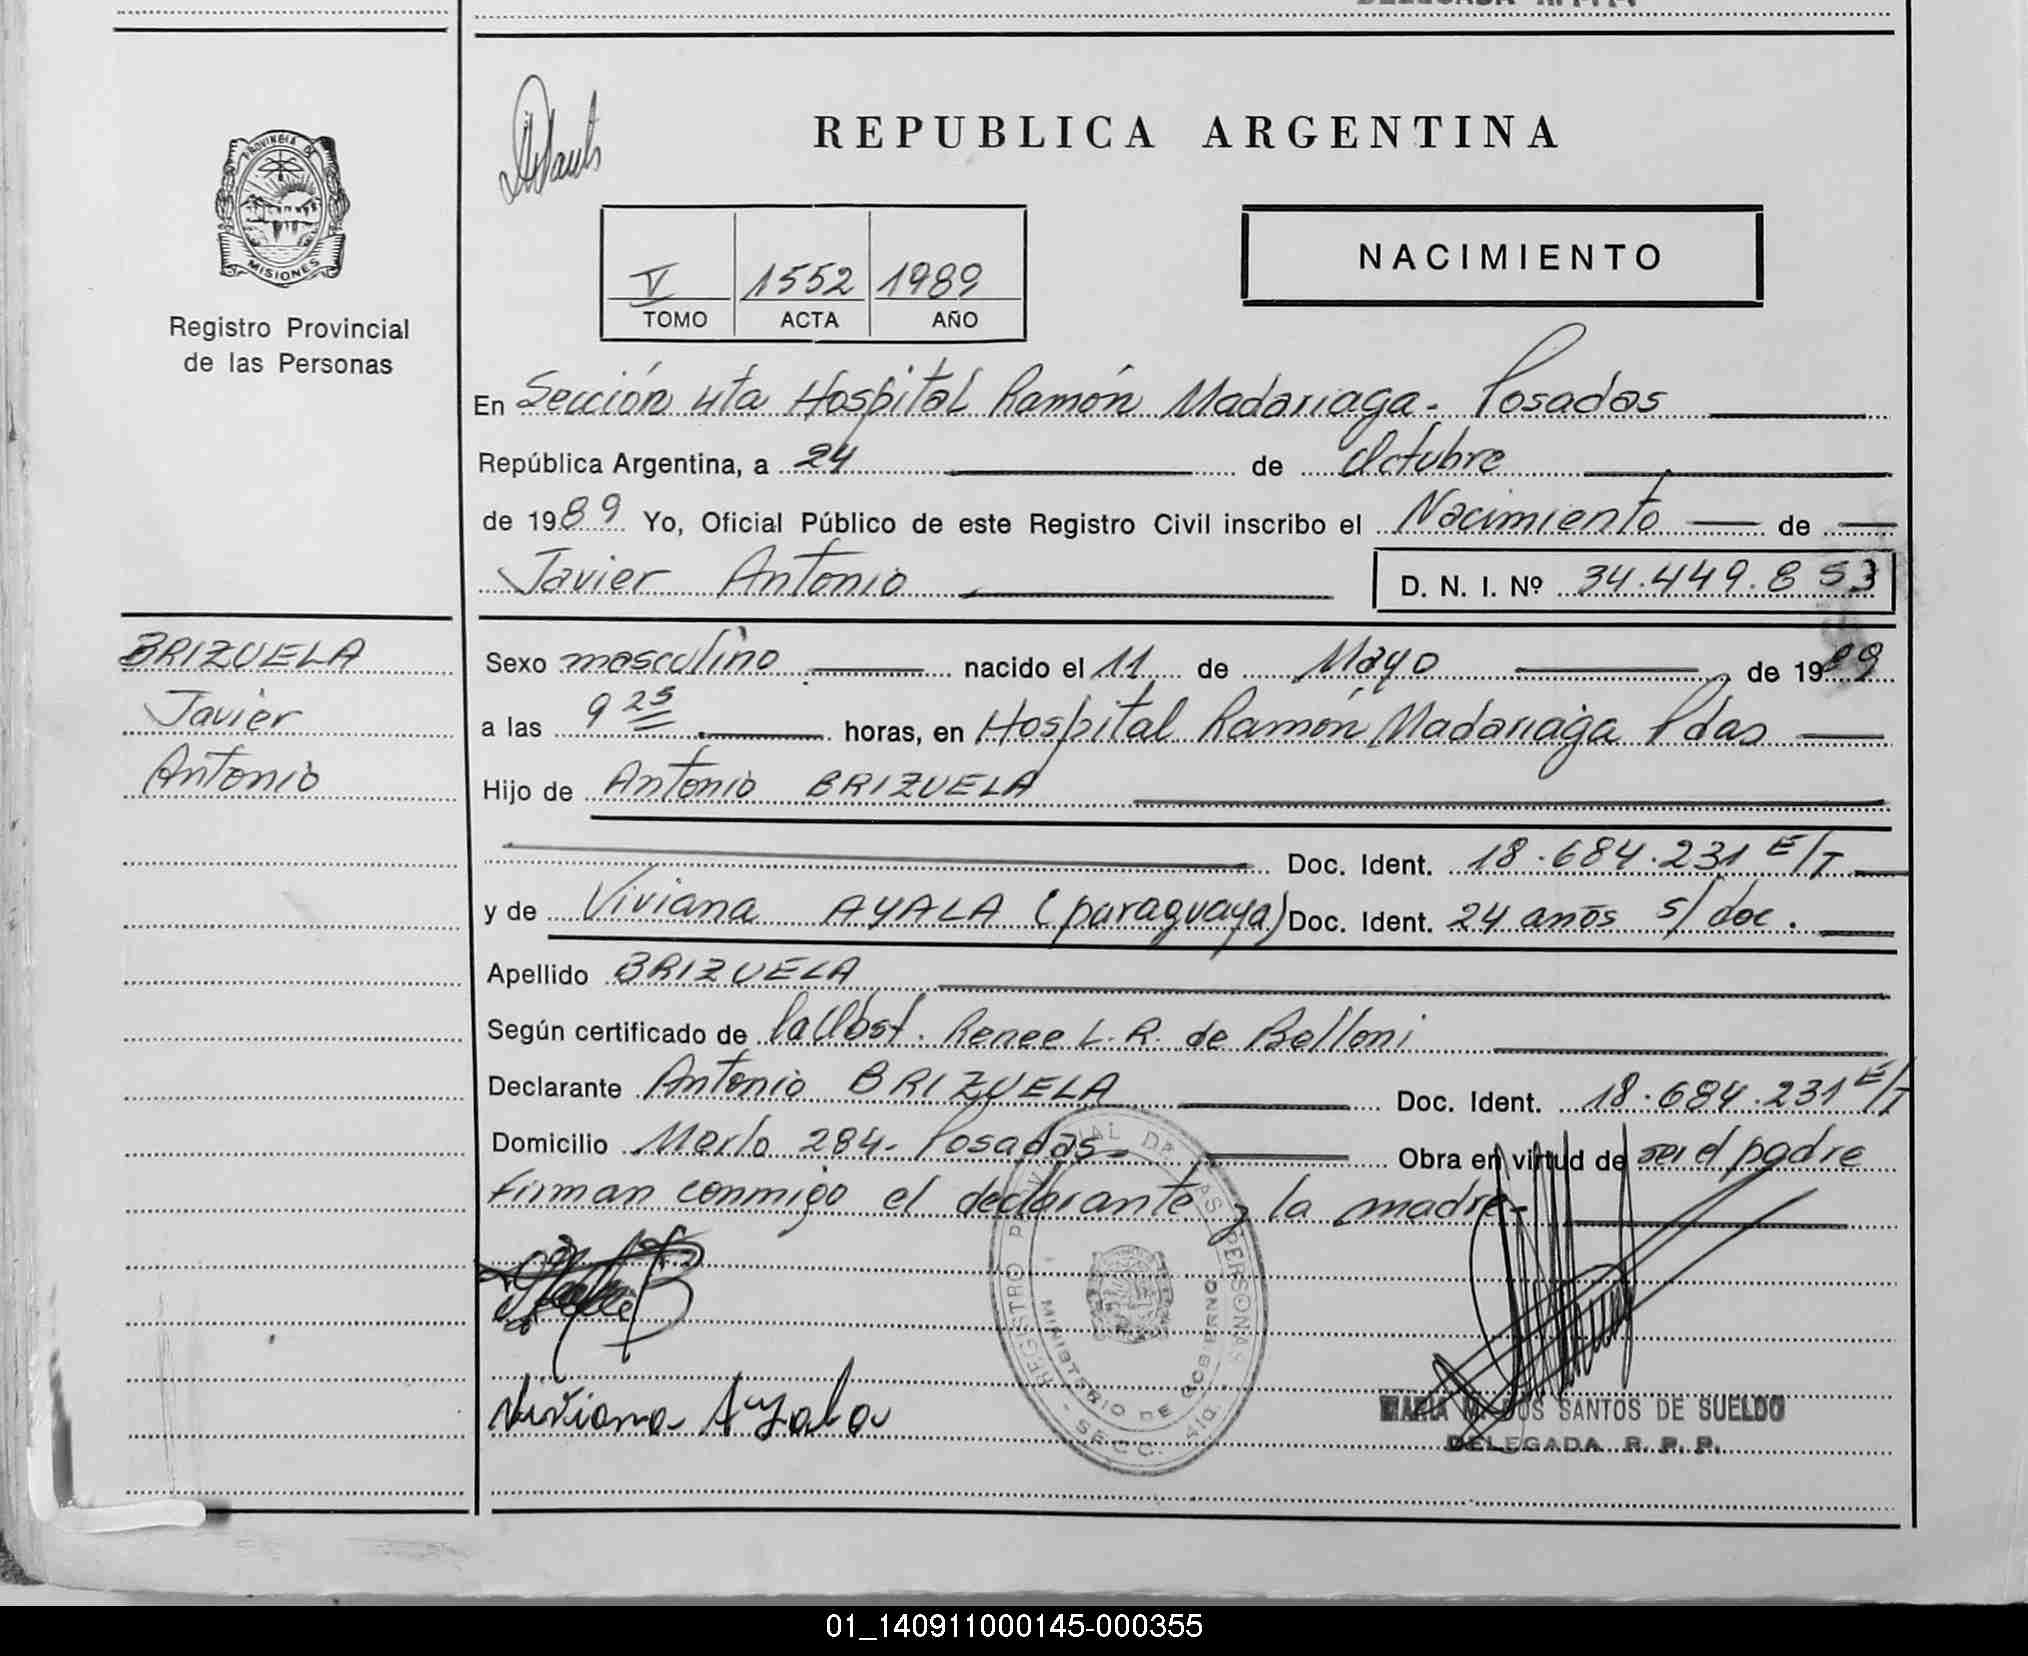 REPUBLICA ARGENTINA
PROVINCIA DE
MISIONES
Registro Provincial
de las Personas
V 1552 1989
TOMO ACTA AÑO
NACIMIENTO
En Sección 4ta Hospital Ramón Madariaga - Posadas
República Argentina, a 24 de Octubre
de 1989 Yo, Oficial Público de este Registro Civil inscribo el Nacimiento de
Javier Antonio D. N. I. Nº 34.449.853
BRIZUELA
Javier
Antonio
Sexo masculino nacido el 11 de Mayo de 1989
a las 9 25 horas, en Hospital Ramón Madariaga Pdas
Hijo de Antonio BRIZUELA
Doc. Ident. 18.684.231 E/T
y de Viviana AYALA (paraguaya) Doc. Ident. 24 anōs s/doc.
Apellido BRIZUELA
Según certificado de la Obst. Renee L. R. de Belloni
Declarante Antonio BRIZUELA Doc. Ident. 18.684.231 E/T
Domicilio Merlo 284- Posadas- Obra en virtud de ser el padre
firman conmigo el declarante y la madre-
REGISTRO PROVINCIAL DE LAS PERSONAS
MINISTERIO DE GOBIERNO
- SECC. 4ta. -
Viviana Ayala
MARIA M. DOS SANTOS DE SUELDO
DELEGADA R. P. P.
01_140911000145-000355